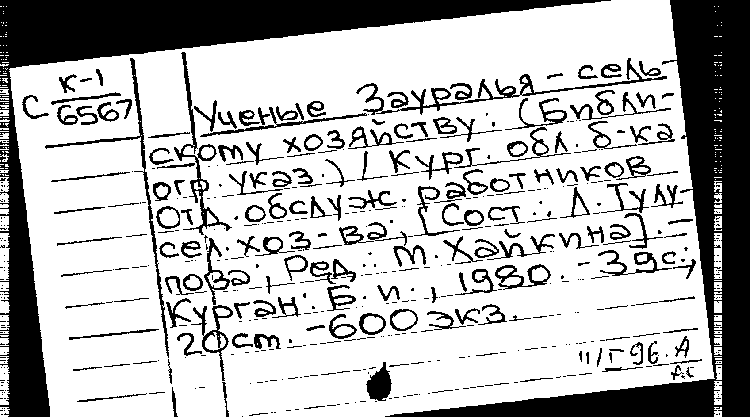 К-1
С 6567
Ученые Зауралья - сель-
скому хозяйству: (Библи-
огр. указ.) / Кург. обл. б-ка.
Отд. обслуж. работников
сел. хоз-ва; [Сост.: Л. Тулу-
пова; Ред.: М. Хайкина]. -
Курган: Б. и., 1980. - 39с.;
20см. - 600 экз.
11/I 96. А
А.С